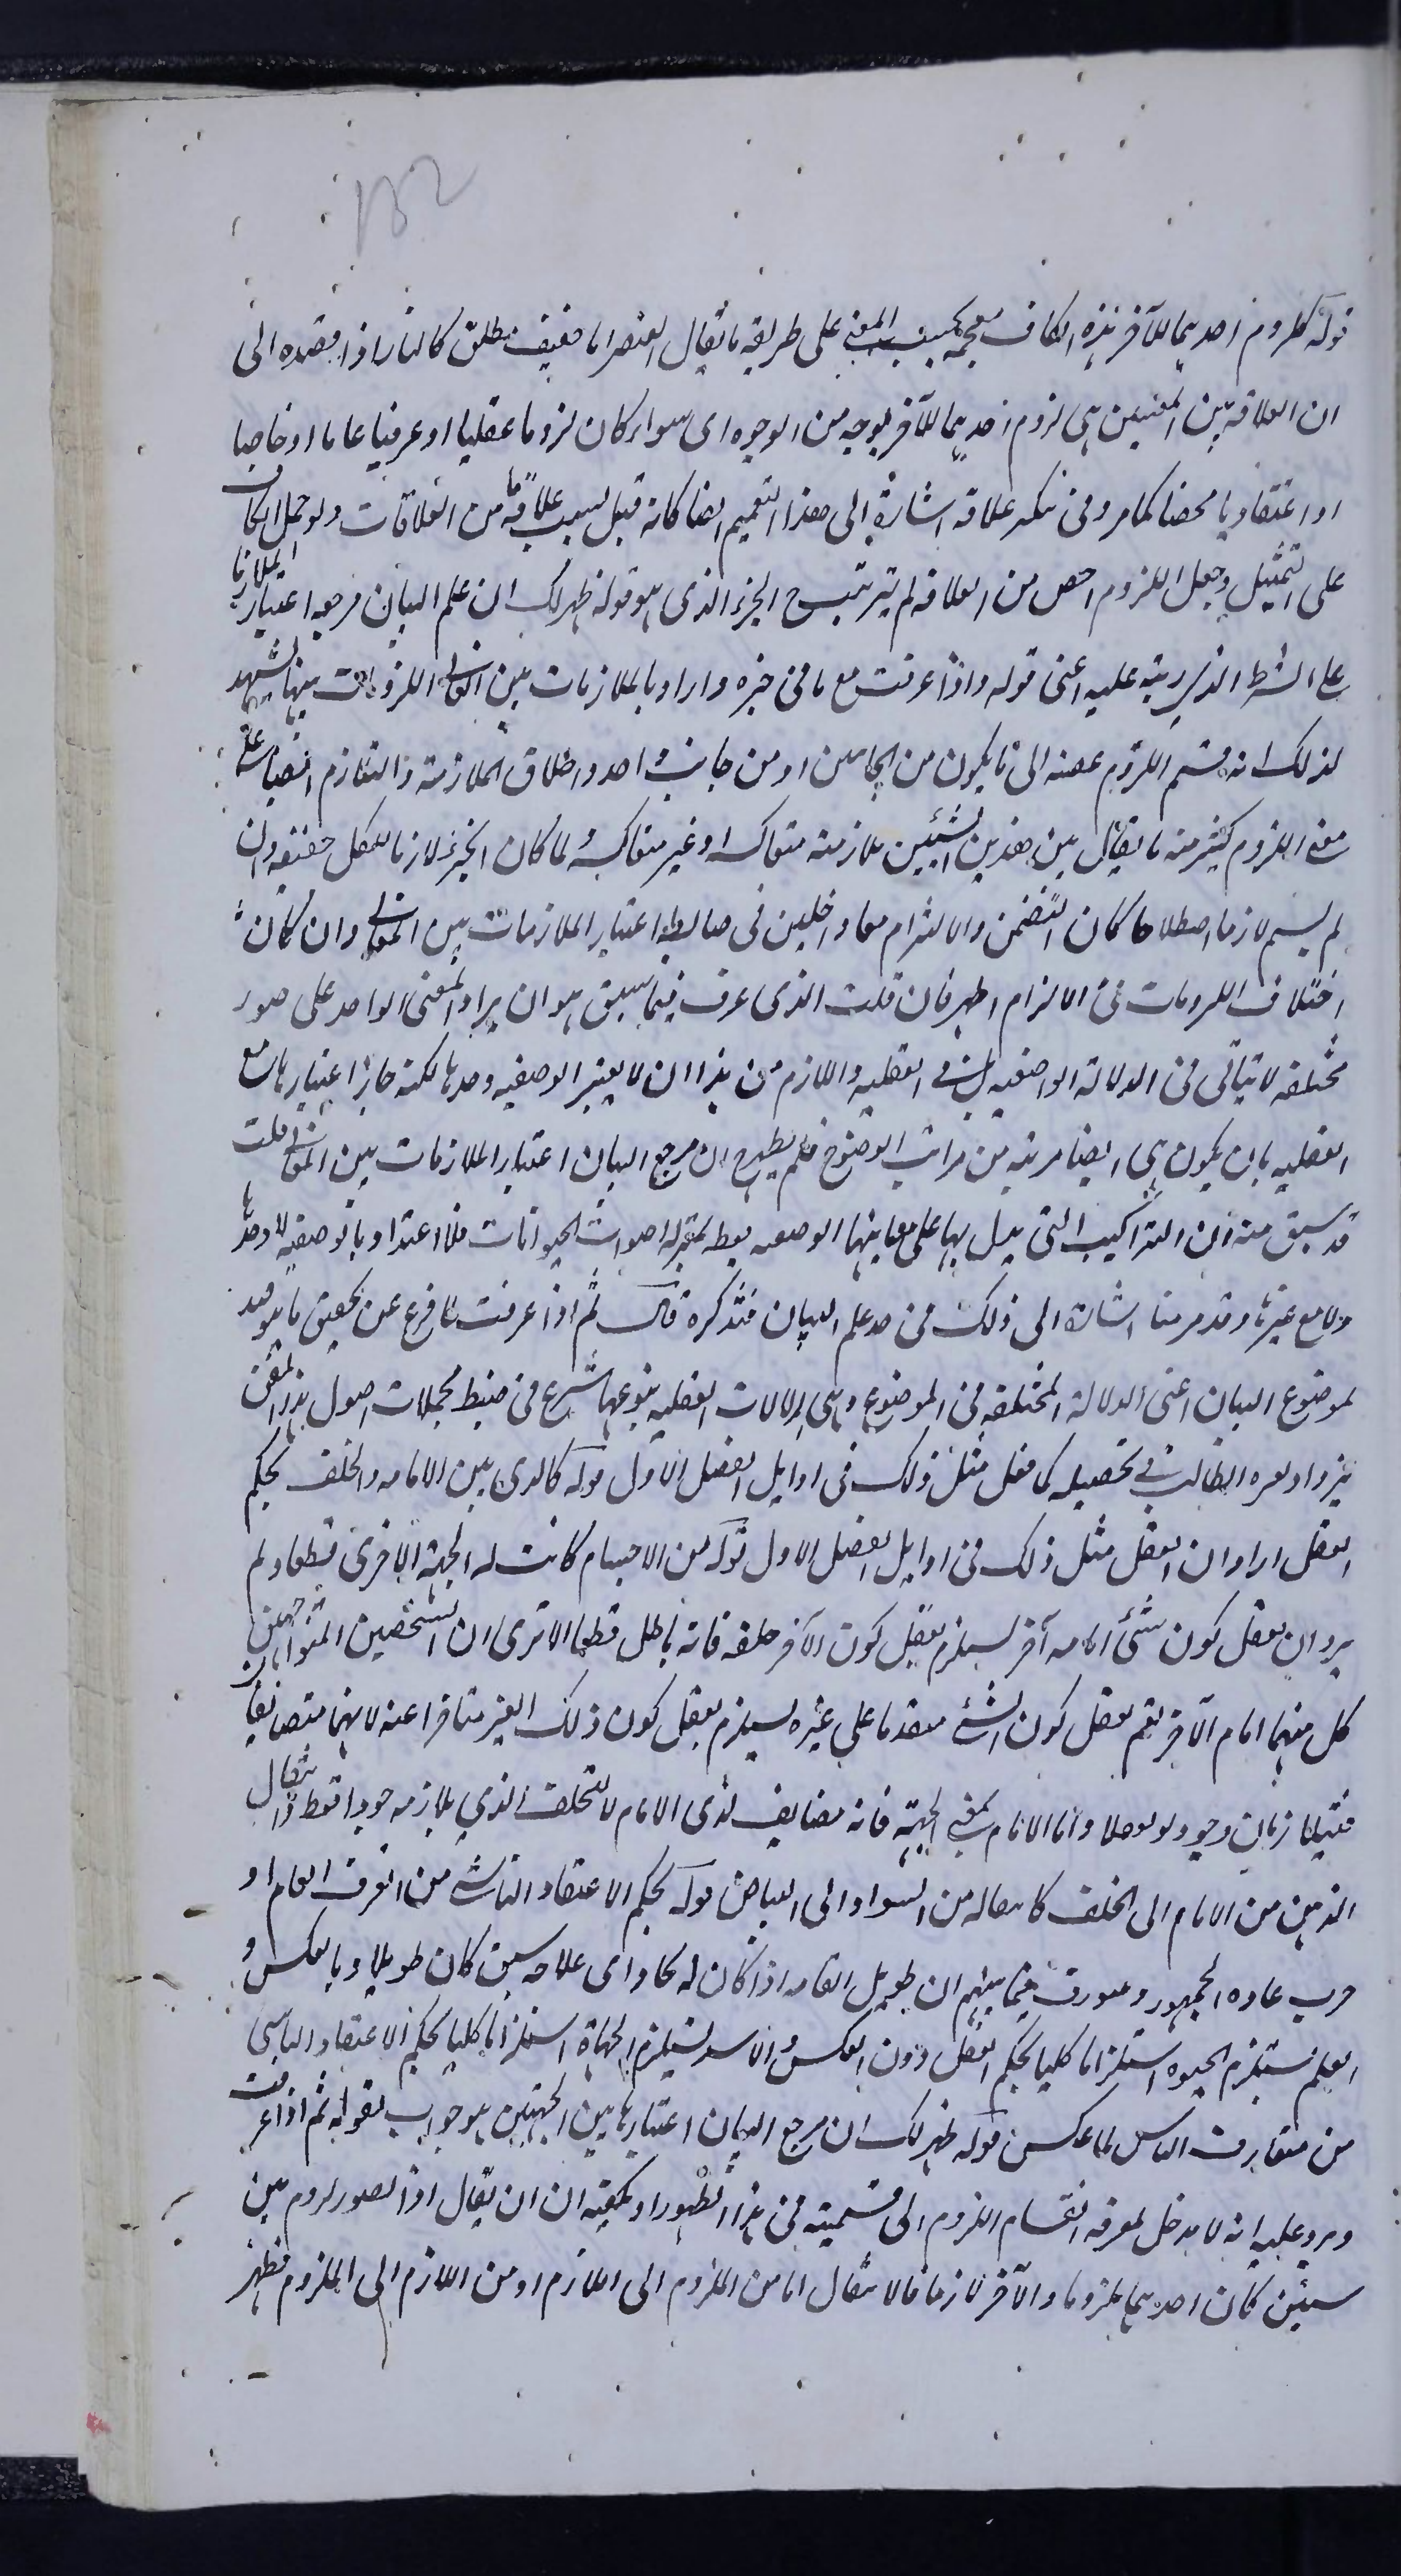 152
قوله كلزوم احديهما للآخر هذه الكاف مقحمة بحسب المعنى على طريقة ما يقال العنصر اما خفيف مطلق كالنار اذا مقصده الى
ان العلاقة بين المعنيين هى لزوم احديهما للآخر بوجه من الوجوه اى سواء كان لزوما عقليا او عرفيا عاما او خاصا
او اعتقاديا محضا كما مر وفى تنكير علاقة اشارة الى هذا التعميم ايضا كانه قيل لسبب علاقة ما من العلاقات ولو حمل الكاف
على التمثيل وجعل اللزوم اخص من العلاقة لم يترتب ح الجزاء الذى هو قوله ظهر لك ان علم البيان مرجعه اعتبار الملازمات
على الشرط الذى رتبه عليه اعنى قوله واذا عرفت مع ما فى خبره واراد بالملازمات بين المعانى اللزومات بينها يشهد
لذلك انه قسم اللزوم عنه الى ما يكون من الجانبين او من جانب واحد واطلاق الملازمة والتلازم ايضا على
معنى اللزوم كثير منه ما يقال بين هذين الشيئين ملازمة متعاكسة او غير متعاكسة ولما كان الجزء لازما للكل حقيقة وان
لم يسم لازما اصطلاحا كان التضمن والالتزام معا داخلين فى ضابطة اعتبار الملازمات بين المعانى وان كان
اختلاف اللزومات فى الالتزام اظهر فان قلت الذى عرف فيما سبق هو ان يراد المعنى الواحد على صور
مختلفة لا يتأتى فى الدلالة الوضعية بل فى العقلية واللازم من هذا ان لا يعتبر الوضعية وحدها لكنه جاز اعتبارها مع
العقلية بان يكون هى ايضا مرتبة من مراتب الوضوح فلم يظهر ح ان مرجع البيان اعتبار الملازمات بين المعانى قلت
قد سبق منه ان التراكيب التى يدل بها على معانيها الوضعية فقط بمنزلة اصوات الحيوانات فلا اعتداد بالوضعية لا وحدها
ولا مع غيرها وقد مر منا اشارة الى ذلك فى حد علم البيان فتذكره قال ثم اذا عرفت لما فرغ عن تحقيق ما هو قيد
لموضوع البيان اعنى الدلالة المختلفة فى الوضوح وهى الدلالات العقلية بنوعيها شرع فى ضبط مجملات اصول هذا الفن
ليزداد بصيرة الطالب فى تحصيله كما فعل مثل ذلك فى اوايل الفصل الاول قوله كالذى بين الامام والخلف بحكم
العقل اراد ان العقل مثل ذلك فى اوايل الفصل الاول قوله من الاجسام كانت له الجهة الاخرى قطعا ولم
يرد ان تعقل كون شئ امامه آخر يستلزم تعقل كون الآخر خلفه فانه باطل قطعا الا ترى ان الشخصين المتواجهين
كل منهما امام الآخر نعم تعقل كون الشئ متقدما على غيره يستلزم تعقل كون ذلك الغير متاخرا عنه لانهما متضايفان
فيتلازمان وجودا وتعقلا واما الامام بمعنى الجهة فانه مضايف لذى الامام لا للخلف الذى يلازمه وجودا فقط وانتقال
الذهن من الامام الى الخلف كانتقاله من السواد الى البياض قوله بحكم الاعتقاد الناشى من العرف العام او
جرت عادة الجمهور وعورف فيما بينهم ان طويل القامة اذا كان له نجاد اى علامة سيف كان طويلا وبالعكس و
العلم يستلزم الحيوة استلزاما كليا بحكم العقل دون العكس والاسد يستلزم الجرأة استلزاما كليا بحكم الاعتقاد الناشى
من متعارف الناس بلا عكس قوله ظهر لك ان مرجع البيان اعتبار هاتين الجهتين هو جواب لقوله ثم اذا عرفت
ويرد عليه انه لا مدخل لمعرفة انقسام اللزوم الى قسميه فى هذا الظهور او يكفيه ان يقال اذا تصور لزوم بين
شيئين كان احدهما ملزوما والآخر لازما فالانتقال اما من الملزوم الى اللازم او من اللازم الى الملزوم فظهر